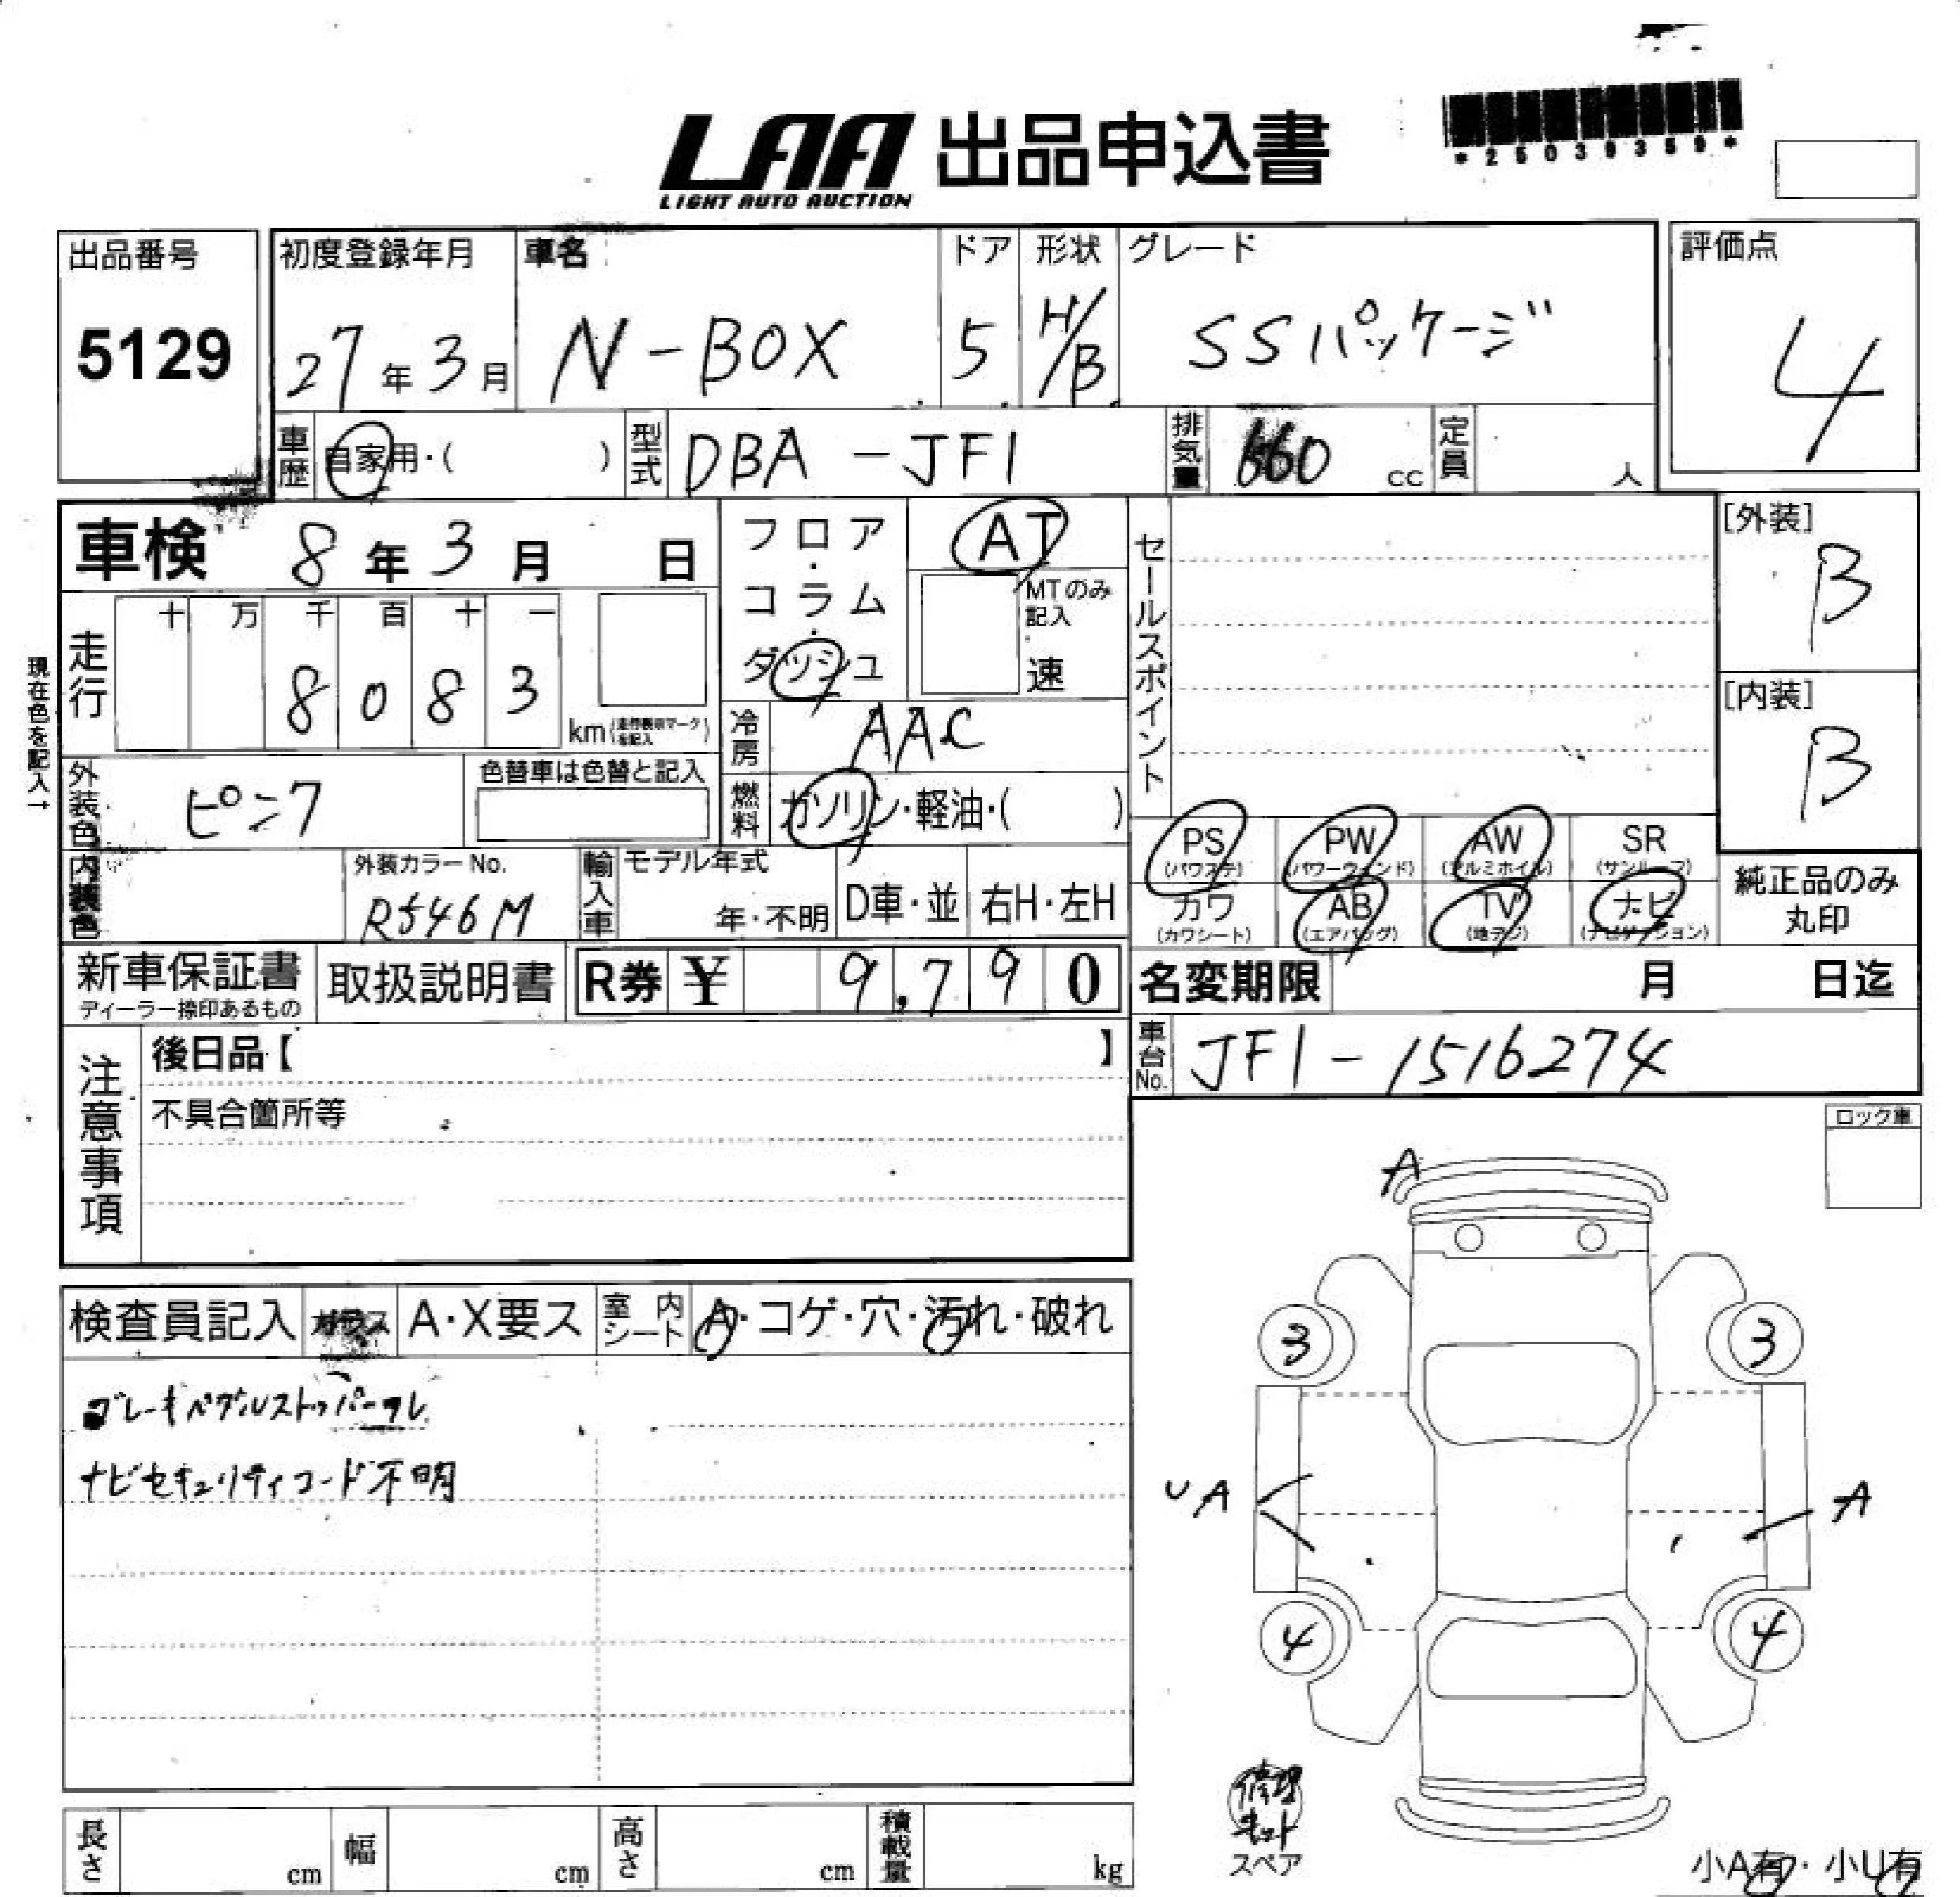 LAA 出品申込書
LIGHT AUTO AUCTION
*25039359*
出品番号
5129
初度登録年月
27年3月
車名
N-BOX
ドア
5
形状
H/B
グレード
SSパッケージ
評価点
4
車歴
自家用・( )
型式
DBA-JF1
排気量
660 cc
定員
人
車検 8年3月 日
走行
十 万 千 百 十 一
8 0 8 3
km(走行表示マークを記入)
現在色を記入→
フロア・コラム・ダッシュ
AT
MTのみ記入
速
セールスポイント
[外装]
B
[内装]
B
冷房
AAC
燃料
ガソリン・軽油・( )
外装色
ピンク
色替車は色替と記入
内装色
外装カラーNo.
R546M
輸入車
モデル年式
年・不明
D車・並
右H・左H
PS
(パワステ)
PW
(パワーウィンド)
AW
(アルミホイル)
SR
(サンルーフ)
カワ
(カワシート)
AB
(エアバッグ)
TV
(地デジ)
ナビ
(ナビゲーション)
純正品のみ
丸印
新車保証書
ディーラー捺印あるもの
取扱説明書
R券 ¥ 9,790
名変期限 月 日迄
車台No.
JF1-1516274
注意事項
後日品【 】
不具合箇所等
ロック車
検査員記入
ガラス
A・X要ス
室内シート
A・コゲ・穴・汚れ・破れ
ブレーキペダルストッパーワレ
ナビセキュリティコード不明
A
3
3
UA
A
4
4
修理キット
スペア
小A有・小U有
長さ cm
幅 cm
高さ cm
積載量 kg